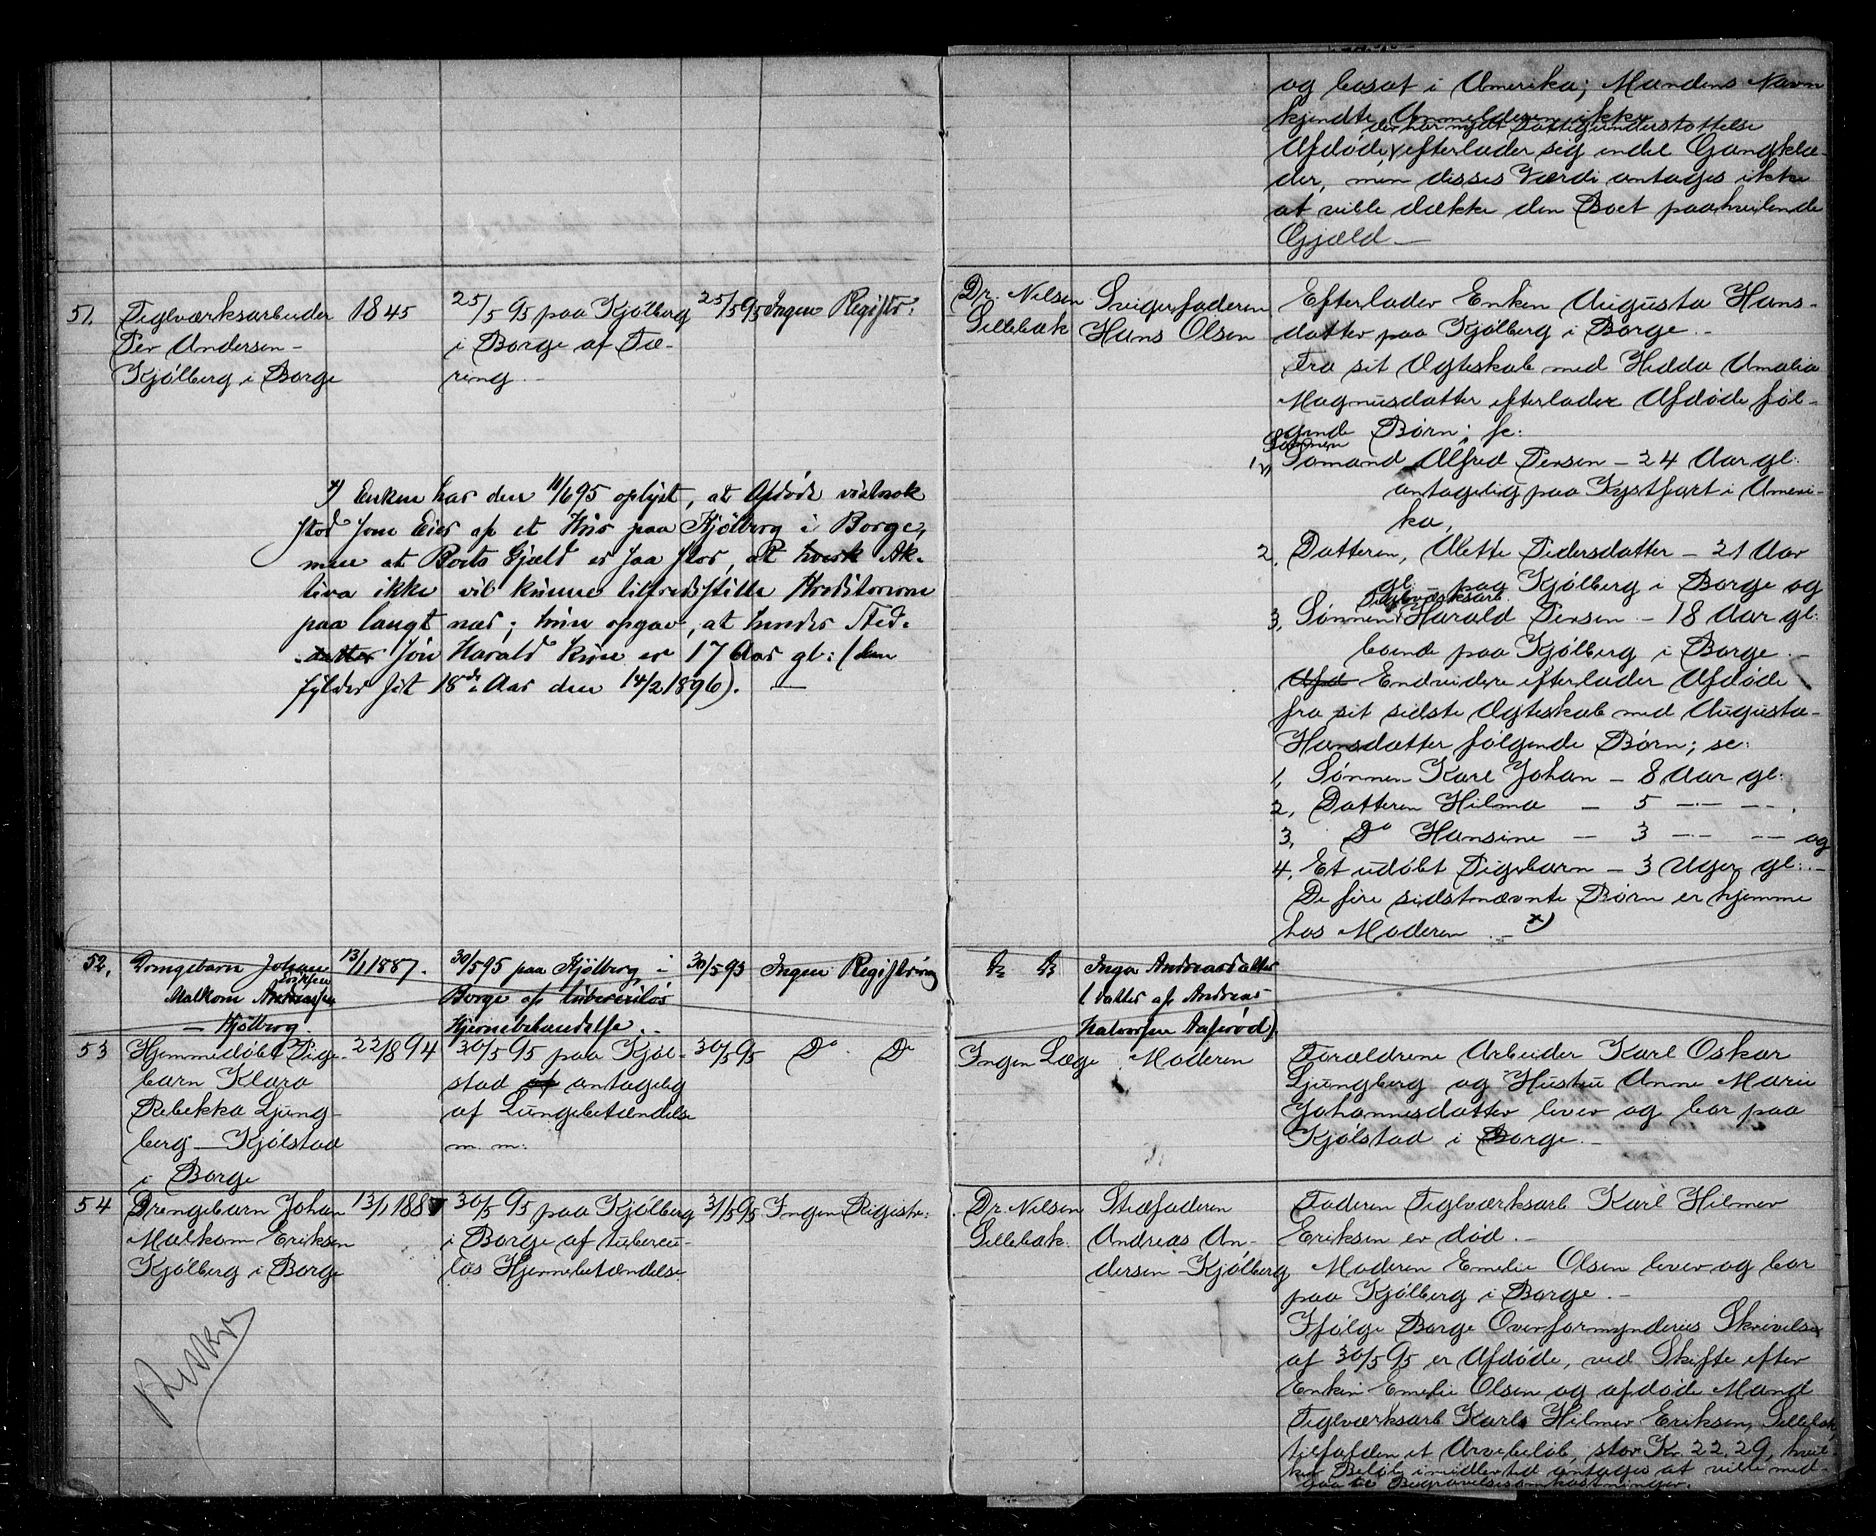 og bosat i Amerika; Mandens Navn
kjendte Anmelderen ikke
der har nydt Fattigunderstøttelse
Afdøde, efterlader sig endel Gangklæ-
der, men disses Værdi antages ikke
at ville dække den Boet paahvilende
Gjæld —
51. Teglværksarbeider
Per Andersen -
Kjølberg i Borge
1845
25/5 95 paa Kjølberg
i Borge af Tæ-
ring. -
25/5 95
Ingen Registr:
Dr. Nilsen
Lillebæk
Svigerfaderen
Hans Olsen
Efterlader Enken Augusta Hans-
datter paa Kjølberg i Borge. -
Fra sit Ægteskab med Hedda Amalia
Magnusdatter efterlader Afdøde føl-
gende Børn; se:
Sønnen
1, Sømand Alfred Persen - 24 Aar gl:
antagelig paa Kystfart i Ameri-
ka,
2. Datteren, Alette Pedersdatter - 21 Aar
gl. - paa Kjølberg i Borge og
Teglværksarb.
3, Sønnen Harald Persen - 18 Aar gl:
boende paa Kjølberg i Borge. -
Afd Endvidere efterlader Afdøde
fra sit sidste Ægteskab med Augusta
Hansdatter følgende Børn; se:
1, Sønnen Karl Johan - 8 Aar gl:
2, Datteren Hilma - 5 -- --.
3, Do Hansine - 3 -- -- og
4. Et udøbt Pigebarn - 3 Uger gl:. -
De fire sidstnævnte Børn er hjemme
hos Moderen. - x)
x) Enken har den 11/6 95 oplyst, at Afdøde vistnok
stod som Eier af et Hus paa Kjølberg i Borge,
men at Boets Gjæld er saa stor, at Ak-
tiva ikke vil kunne tilfredsstille Kreditorerne
paa langt nær; hun opgav, at hendes Sted-
datter søn Harald kun er 17 Aar gl: (han
fylder sit 18de Aar den 14/2 1896). —
52, Drengebarn Johan
Eriksen
Malkom Andreassen
- Kjølberg.
13/1 1887.
30/5 95 paa Kjølberg i
Borge af tuberculøs
Hjernebetændelse. .
30/5 95
Ingen Registrering
Do Do
Inga Andreasdatter
(datter af Andreas
Halvorsen Aaserød).
53 Hjemmedøbt Pige-
barn Klara
Rebekka Ljung-
berg - Kjølstad
i Borge
22/8 94
30/5 95 paa Kjøl-
stad af antagelig
af Lungebetændelse
m. m.
30/5 95
Do. Do
Ingen Læge
Moderen
Forældrene Arbeider Karl Oskar
Ljungberg og Hustru Anne Marie
Johannesdatter lever og bor paa
Kjølstad i Borge. -
54 Drengebarn Johan
Malkom Eriksen
Kjølberg i Borge
13/1 1887
30/5 95 paa Kjølberg
i Borge af tubercu-
løs Hjernebetændelse
31/5 95
Ingen Registr:
Dr. Nilsen
Lillebæk.
Stedfaderen
Andreas An-
dersen Kjølberg
Faderen Teglværksarb Karl Hilmer
Eriksen er død. -
Moderen Emelie Olsen lever og bor
paa Kjølberg i Borge. -
Ifølge Borge Overformynderies Skrivelse
af 30/5 95 er Afdøde, ved Skifte efter
Enken Emelie Olsen og afdøde Mand
Teglværksarb Karl Hilmer Eriksen, Lillebæk,
tilfalden et Arvebeløb, stor Kr. 22,29, hvil-
ket Beløb imidlertid antages at ville med-
gaa til Begravelsesomkostninger.